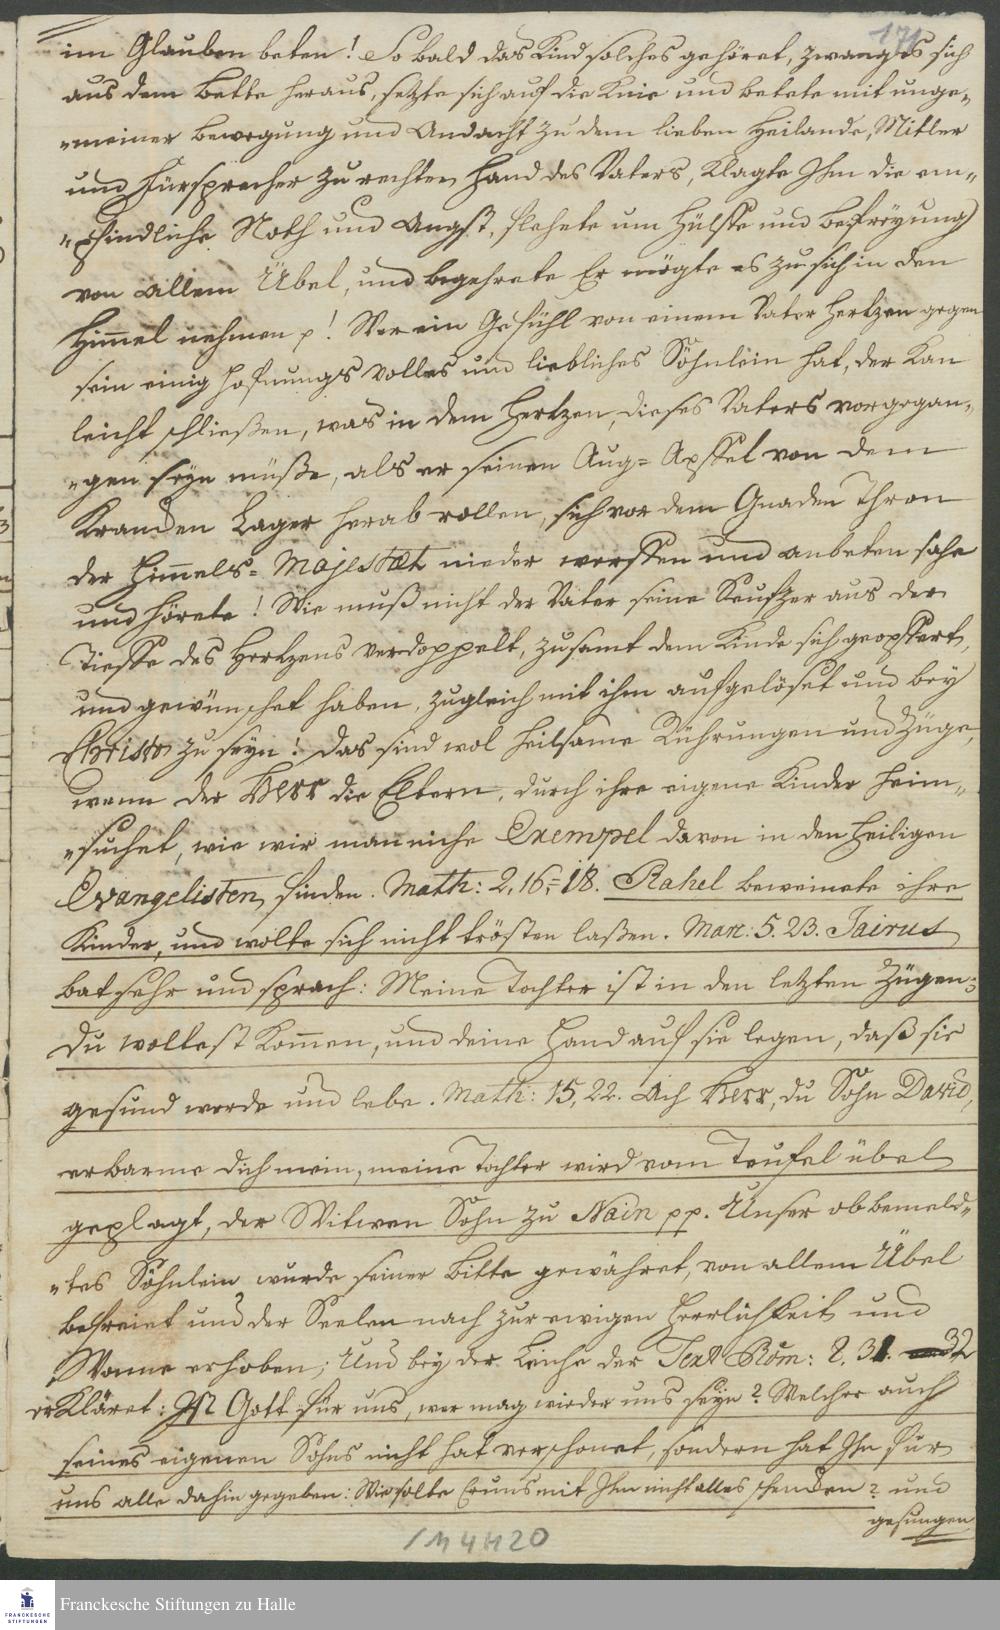 171
im Glauben beten! So bald das Kind solches gehöret, zwang es sich
aus dem Bette heraus, setzte sich auf die Knie und betete mit unge„
„meiner Bewegung und Andacht zu dem lieben Heilande, Mitler
und Fürsprecher zur rechten Hand des Vaters, klagte Ihm die em„
„pfindliche Noth und Angst, flehete um Hülffe und Befreyung
von allem Übel, und begehrete Er mögte es zu sich in den
Himmel nehmen p! Wer ein Gefühl von einem Vater Hertzen gegen
sein einig hofnungs volles und liebliches Söhnlein hat, der kan
leicht schließen, was in dem Hertzen dieses Vaters vorgegan„
„gen seyn müße, als er seinen Aug= Apffel von dem
Krancken Lager herab rollen, sich vor dem Gnaden Thron
der Himmels= Majestæt nieder werffen und anbeten sahe
und hörete! Wie muß nicht der Vater seine Seufzer aus der
Tieffe des Hertzens verdoppelt, zusamt dem Kinde sich geopffert,
und gewünschet haben, zugleich mit ihm aufgelöset und bey
Christo zu seyn! Das sind wol heilsame Rührungen und Züge,
wenn der HErr die Eltern, durch ihre eigene Kinder heim„
„suchet, wie wir manniche Exempel davon in den heiligen
Evangelisten finden. Math: 2, 16,=18. Rahel beweinete ihre
Kinder, und wolte sich nicht trösten laßen. Marc: 5. 23. Jairus
bat sehr und sprach: Meine Tochter ist in den letzten Zügen;
du woltest kommen, und deine Hand auf sie legen, daß sie
gesund werde und lebe. Math: 15, 22. Ach HErr, du Sohn David,
erbarme dich mein, meine Tochter wird vom Teufel übel
geplagt, der Witwen Sohn zu Nain pp. Unser obbemeld„
„tes Söhnlein wurde seiner Bitte gewähret, von allem Übel
befreiet und der Seelen nach zur ewigen Herrlichkeit und
Wonne erhoben; Und bey der Leiche der Text Röm: 8. 31. 32
erkläret: Ist Gott für uns, wer mag wieder uns seyn? Welcher auch
seines eigenen Sohns nicht hat verschonet, sondern hat Ihn für
uns alle dahin gegeben: Wie solte Er uns mit Ihm nicht alles schencken? und
gesungen
1M 4H20
Franckesche Stiftungen zu Halle
FRANCKESCHE
STIFTUNGEN